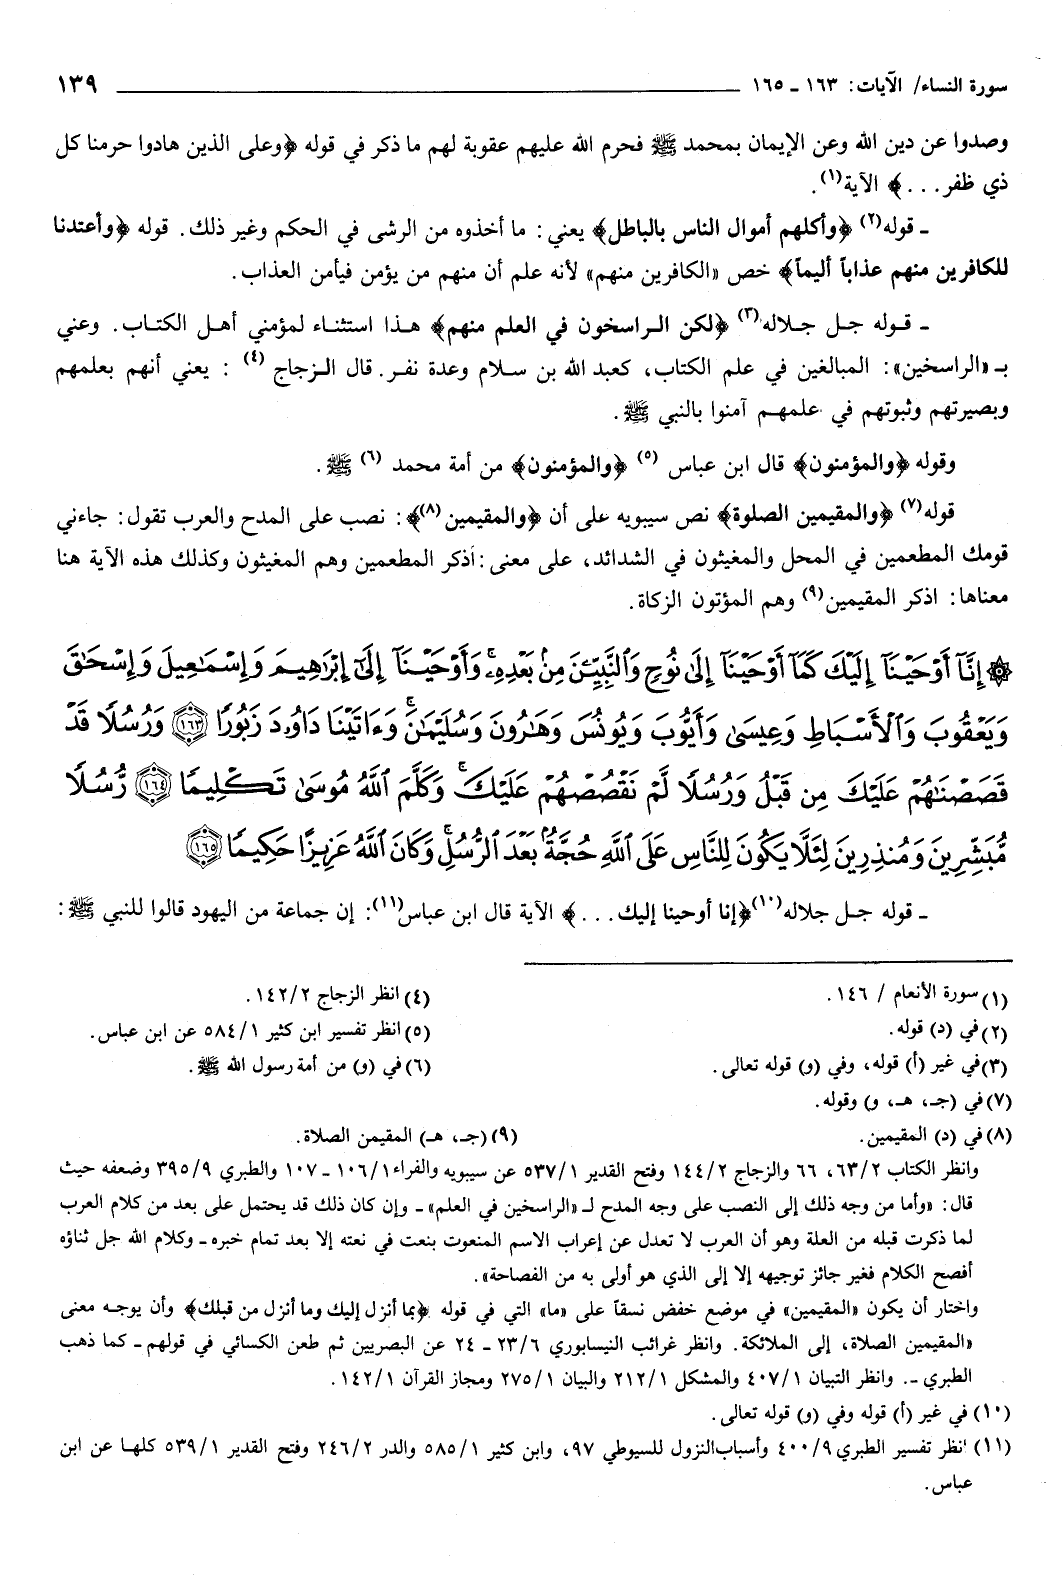 سورة النساء/ الآيات: ١٦٣ ـ ١٦٥ ١٣٩
وصدوا عن دين الله وعن الإيمان بمحمد ﷺ فحرم الله عليهم عقوبة لهم ما ذكر في قوله ﴿وعلى الذين هادوا حرمنا كل
ذي ظفر. . .﴾ الآية(١).
ـ قوله(٢) ﴿وأكلهم أموال الناس بالباطل﴾ يعني: ما أخذوه من الرشى في الحكم وغير ذلك. قوله ﴿وأعتدنا
للكافرين منهم عذاباً أليماً﴾ خص «الكافرين منهم» لأنه علم أن منهم من يؤمن فيأمن العذاب.
ـ قوله جل جلاله(٣) ﴿لكن الراسخون في العلم منهم﴾ هذا استثناء لمؤمني أهل الكتاب. وعني
بـ «الراسخين»: المبالغين في علم الكتاب، كعبد الله بن سلام وعدة نفر. قال الزجاج (٤) : يعني أنهم بعلمهم
وبصيرتهم وثبوتهم في علمهم آمنوا بالنبي ﷺ.
وقوله ﴿والمؤمنون﴾ قال ابن عباس (٥) ﴿والمؤمنون﴾ من أمة محمد (٦) ﷺ.
قوله(٧) ﴿والمقيمين الصلوة﴾ نص سيبويه على أن ﴿والمقيمين(٨)﴾: نصب على المدح والعرب تقول: جاءني
قومك المطعمين في المحل والمغيثون في الشدائد، على معنى: أذكر المطعمين وهم المغيثون وكذلك هذه الآية هنا
معناها: اذكر المقيمين(٩) وهم المؤتون الزكاة.
۞ إِنَّآ أَوْحَيْنَآ إِلَيْكَ كَمَآ أَوْحَيْنَآ إِلَىٰ نُوحٍ وَٱلنَّبِيِّـۧنَ مِنۢ بَعْدِهِۦۚ وَأَوْحَيْنَآ إِلَىٰٓ إِبْرَٰهِيمَ وَإِسْمَـٰعِيلَ وَإِسْحَـٰقَ
وَيَعْقُوبَ وَٱلْأَسْبَاطِ وَعِيسَىٰ وَأَيُّوبَ وَيُونُسَ وَهَـٰرُونَ وَسُلَيْمَـٰنَۚ وَءَاتَيْنَا دَاوُۥدَ زَبُورًا ١٦٣ وَرُسُلًا قَدْ
قَصَصْنَـٰهُمْ عَلَيْكَ مِن قَبْلُ وَرُسُلًا لَّمْ نَقْصُصْهُمْ عَلَيْكَۚ وَكَلَّمَ ٱللَّهُ مُوسَىٰ تَكْلِيمًا ١٦٤ رُّسُلًا
مُّبَشِّرِينَ وَمُنذِرِينَ لِئَلَّا يَكُونَ لِلنَّاسِ عَلَى ٱللَّهِ حُجَّةٌۢ بَعْدَ ٱلرُّسُلِۚ وَكَانَ ٱللَّهُ عَزِيزًا حَكِيمًا ١٦٥
ـ قوله جل جلاله(١٠) ﴿إنا أوحينا إليك. . .﴾ الآية قال ابن عباس(١١): إن جماعة من اليهود قالوا للنبي ﷺ:
(١) سورة الأنعام / ١٤٦. (٤) انظر الزجاج ١٤٢/٢.
(٢) في (د) قوله. (٥) انظر تفسير ابن كثير ٥٨٤/١ عن ابن عباس.
(٣) في غير (أ) قوله، وفي (و) قوله تعالى. (٦) في (و) من أمة رسول الله ﷺ.
(٧) في (جـ، هـ، و) وقوله.
(٨) في (د) المقيمين. (٩) (جـ، هـ) المقيمن الصلاة.
وانظر الكتاب ٦٣/٢، ٦٦ والزجاج ١٤٤/٢ وفتح القدير ٥٣٧/١ عن سيبويه والفراء ١٠٦/١ ـ ١٠٧ والطبري ٣٩٥/٩ وضعفه حيث
قال: «وأما من وجه ذلك إلى النصب على وجه المدح لـ «الراسخين في العلم» ـ وإن كان ذلك قد يحتمل على بعد من كلام العرب
لما ذكرت قبله من العلة وهو أن العرب لا تعدل عن إعراب الاسم المنعوت بنعت في نعته إلا بعد تمام خبره ـ وكلام الله جل ثناؤه
أفصح الكلام فغير جائز توجيهه إلا إلى الذي هو أولى به من الفصاحة».
واختار أن يكون «المقيمين» في موضع خفض نسقاً على «ما» التي في قوله ﴿بما أنزل إليك وما أنزل من قبلك﴾ وأن يوجه معنى
«المقيمين الصلاة، إلى الملائكة. وانظر غرائب النيسابوري ٢٣/٦ ـ ٢٤ عن البصريين ثم طعن الكسائي في قولهم ـ كما ذهب
الطبري ـ. وانظر التبيان ٤٠٧/١ والمشكل ٢١٢/١ والبيان ٢٧٥/١ ومجاز القرآن ١٤٢/١.
(١٠) في غير (أ) قوله وفي (و) قوله تعالى.
(١١) انظر تفسير الطبري ٤٠٠/٩ وأسباب النزول للسيوطي ٩٧، وابن كثير ٥٨٥/١ والدر ٢٤٦/٢ وفتح القدير ٥٣٩/١ كلها عن ابن
عباس.